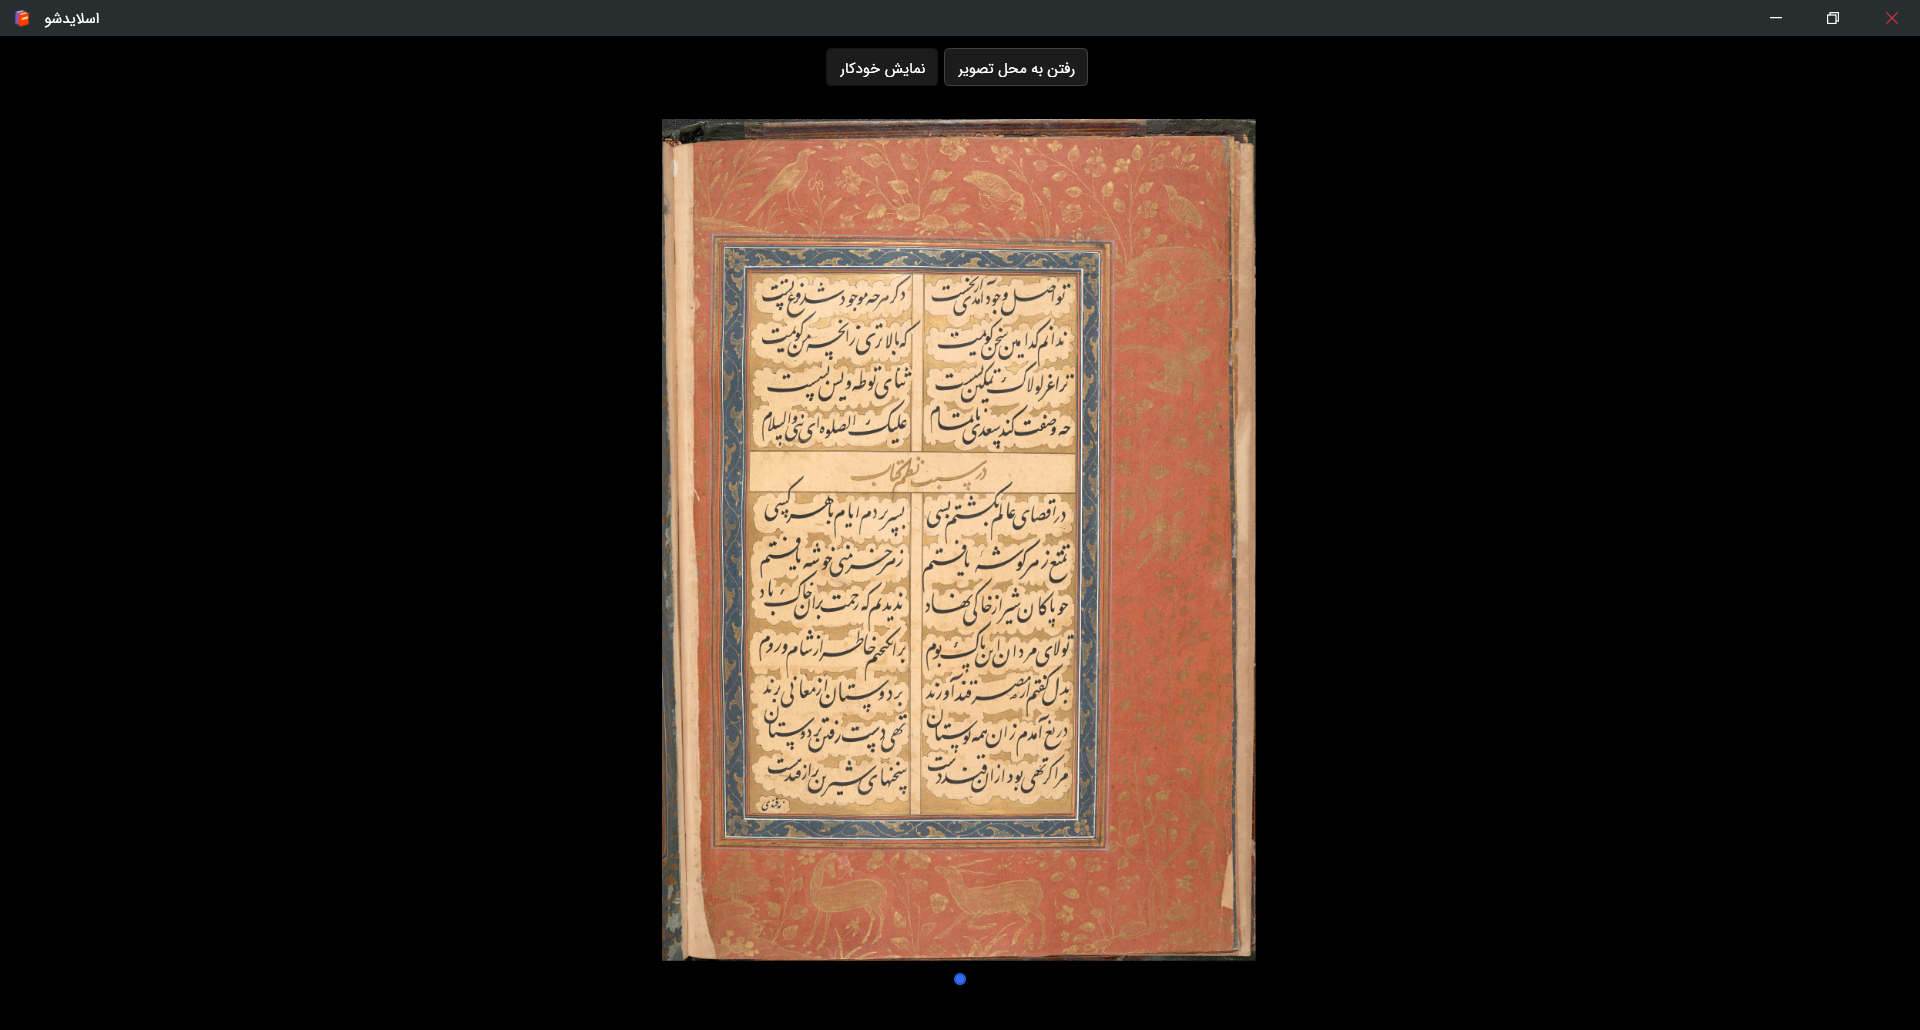 اسلایدشو
رفتن به محل تصویر
نمایش خودکار
تو اصل وجود آمدی از نخست دگر هرچه موجود شد فرع تست
ندانم کدامین سخن گویمت که بالاتری زانچه من گویمت
ترا عز لولاک تمکین بسست ثنای تو طه و یس بسست
چه وصفت کند سعدی ناتمام علیک الصلوه ای نبی والسلام
در سبب نظم کتاب
در اقصای عالم بگشتم بسی بسر بردم ایام با هر کسی
تمتع ز هر گوشهٔ یافتم ز هر خرمنی خوشه یافتم
چو پاکان شیراز خاکی نهاد ندیدم که رحمت بران خاک باد
تولای مردان این پاک بوم برانگیختم خاطر از شام و روم
بدل گفتم از مصر قند آورند بر دوستان ارمغانی برند
دریغ آمدم زان همه بوستان تهی دست رفتن بر دوستان
مرا گر تهی بود ازان قند دست سخنهای شیرین تر از قند هست
نه قندی